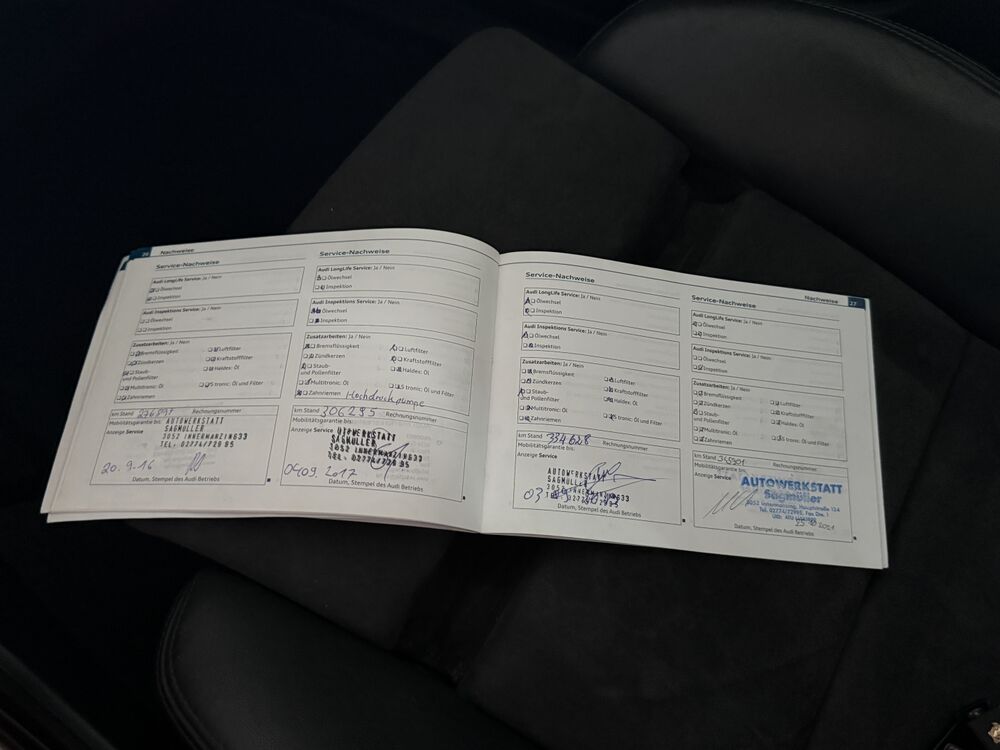 26 Nachweise
Service-Nachweise
Audi LongLife Service: Ja / Nein
Ölwechsel
Inspektion
Audi Inspektions Service: Ja / Nein
Ölwechsel
Inspektion
Zusatzarbeiten: Ja / Nein
Bremsflüssigkeit
Luftfilter
Zündkerzen
Kraftstofffilter
Staub-
und Pollenfilter
Haldex: Öl
Multitronic: Öl
S tronic: Öl und Filter
Zahnriemen
km Stand
Rechnungsnummer
Mobilitätsgarantie bis:
Anzeige Service
AUTOWERKSTATT
SAGMÜLLER
3052 INNERMANZING33
TEL. 02774/728 95
20.9.16
Datum, Stempel des Audi Betriebs
Service-Nachweise
Audi LongLife Service: Ja / Nein
Ölwechsel
Inspektion
Audi Inspektions Service: Ja / Nein
Ölwechsel
Inspektion
Zusatzarbeiten: Ja / Nein
Bremsflüssigkeit
Luftfilter
Zündkerzen
Kraftstofffilter
Staub-
und Pollenfilter
Haldex: Öl
Multitronic: Öl
S tronic: Öl und Filter
Zahnriemen Hochdruckpumpe
km Stand 306295 Rechnungsnummer
Mobilitätsgarantie bis:
Anzeige Service
AUTOWERKSTATT
SAGMÜLLER
3052 INNERMANZING33
TEL. 02774/728 95
04.09.2017
Datum, Stempel des Audi Betriebs
Service-Nachweise
Audi LongLife Service: Ja / Nein
Ölwechsel
Inspektion
Audi Inspektions Service: Ja / Nein
Ölwechsel
Inspektion
Zusatzarbeiten: Ja / Nein
Bremsflüssigkeit
Luftfilter
Zündkerzen
Kraftstofffilter
Staub-
und Pollenfilter
Haldex: Öl
Multitronic: Öl
S tronic: Öl und Filter
Zahnriemen
km Stand 334628 Rechnungsnummer
Mobilitätsgarantie bis:
Anzeige Service
AUTOWERKSTATT
SAGMÜLLER
3052 INNERMANZING33
03
Datum, Stempel des Audi Betriebs
Nachweise 27
Service-Nachweise
Audi LongLife Service: Ja / Nein
Ölwechsel
Inspektion
Audi Inspektions Service: Ja / Nein
Ölwechsel
Inspektion
Zusatzarbeiten: Ja / Nein
Bremsflüssigkeit
Luftfilter
Zündkerzen
Kraftstofffilter
Staub-
und Pollenfilter
Haldex: Öl
Multitronic: Öl
S tronic: Öl und Filter
Zahnriemen
km Stand 345901 Rechnungsnummer
Mobilitätsgarantie bis:
Anzeige Service
AUTOWERKSTATT
Sagmüller
3052 Innermanzing, Hauptstraße 124
Tel. 02774/72895, Fax Dw. 1
2021
Datum, Stempel des Audi Betriebs